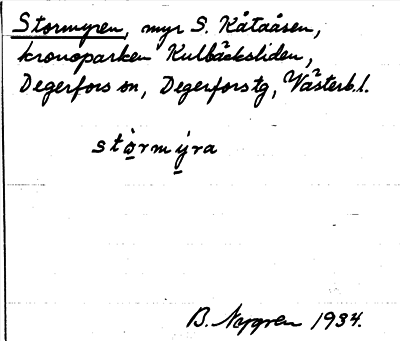 Stormyren, myr S. Kåtaåsen,
kronoparken Kulbäcksliden,
Degerfors sn, Degerforstg, Västerb.l.
stò̱rmý̱ra
B. Nygren 1934.